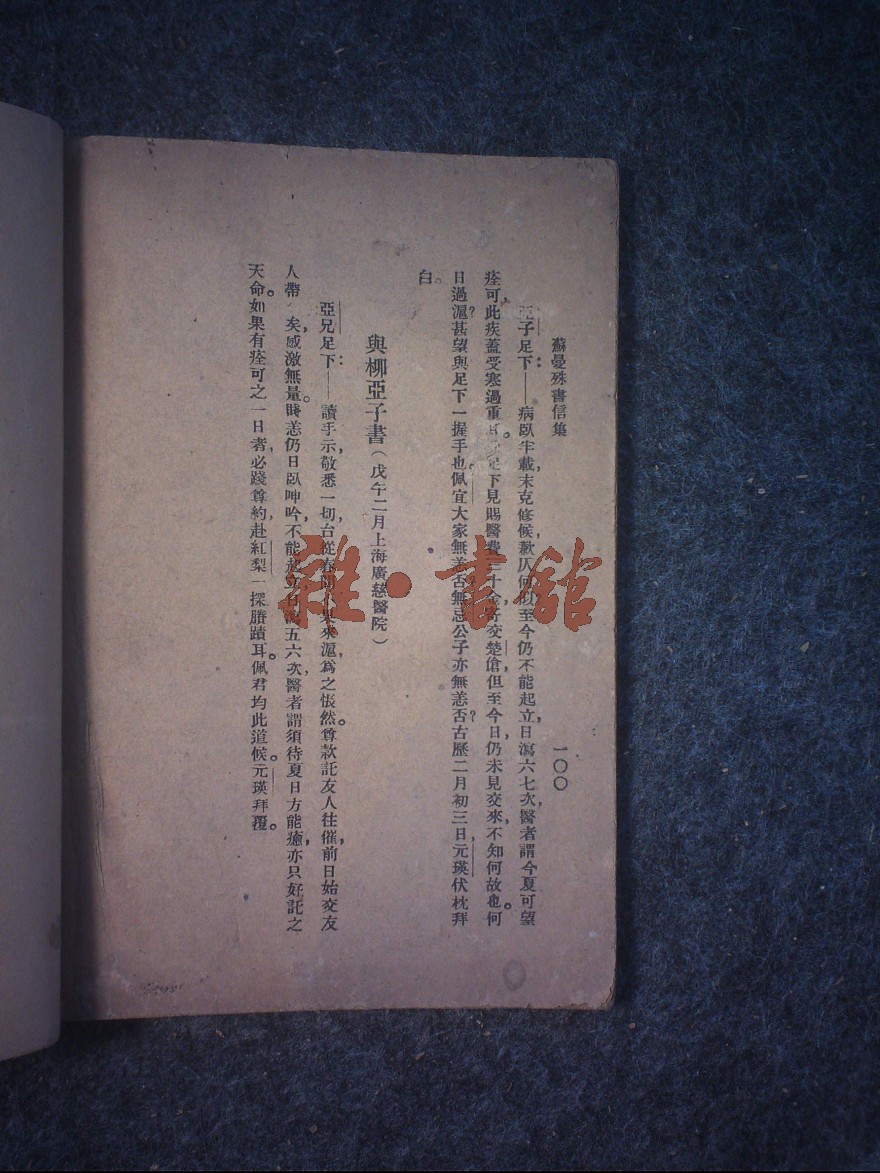 蘇曼殊書信集
一〇〇
亞子足下：——病臥半載，未克修候，歉仄何似至今仍不能起立，日瀉六七次，醫者謂今夏可望
痊可，此疾蓋受寒過重。足下見賜醫費三十金寄交楚傖，但至今日仍未見交來，不知何故也。何
日過滬？甚望與足下一握手也。佩宜大家無恙否？無忌公子亦無恙否？古歷二月初三日元瑛伏枕拜
白。
與柳亞子書（戊午二月上海廣慈醫院）
亞兄足下：——讀手示，敬悉一切，台從春間來滬，為之悵然。尊款託友人往催，前日始交友
人帶矣，感激無量。賤恙仍日臥呻吟，不能起立，日瀉五六次，醫者謂須待夏日方能癒，亦只好託之
天命。如果有痊可之一日者，必踐尊約，赴紅梨一探勝蹟耳。佩君均此道候。元瑛拜覆。
雜·書館